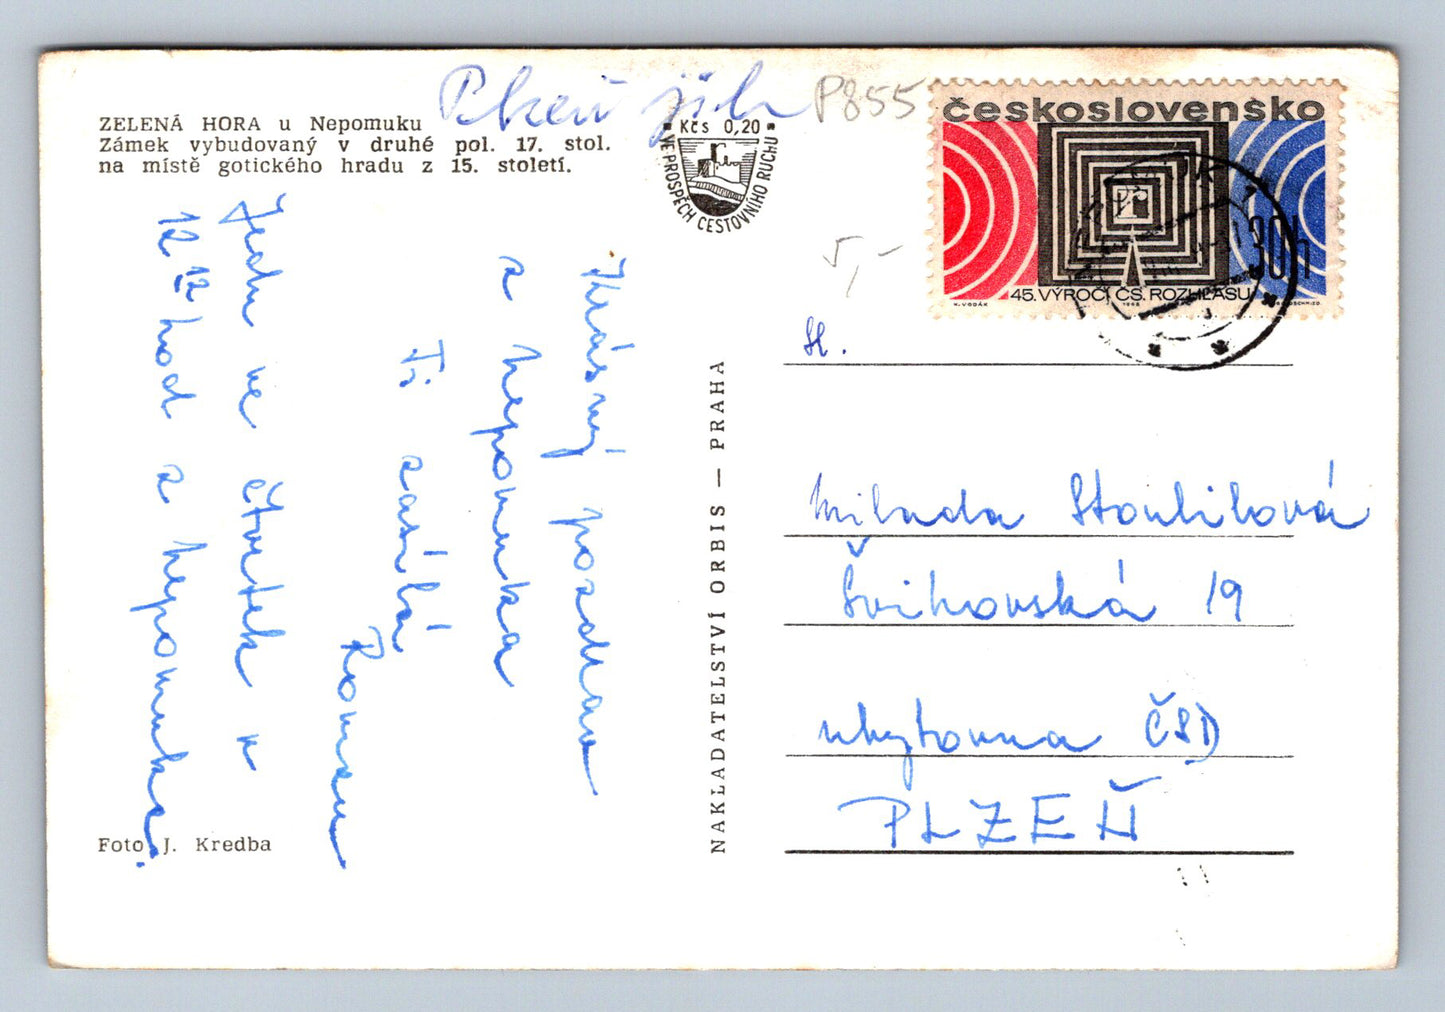 Plzeň jih P855
ZELENÁ HORA u Nepomuku
Zámek vybudovaný v druhé pol. 17. stol.
na místě gotického hradu z 15. století.
Kčs 0,20
VE PROSPĚCH CESTOVNÍHO RUCHU
československo
30h
45. VÝROČÍ ČS. ROZHLASU
K. VODÁK 1968
5,-
Krásný pozdrav
z Nepomuka
Ti zasílá
Roman
Jedu ve čtvrtek v
12 12 hod z Nepomuka.
Foto J. Kredba
NAKLADATELSTVÍ ORBIS — PRAHA
Sl.
Milada Stoulilová
Švihovská 19
ubytovna ČSD
PLZEŇ